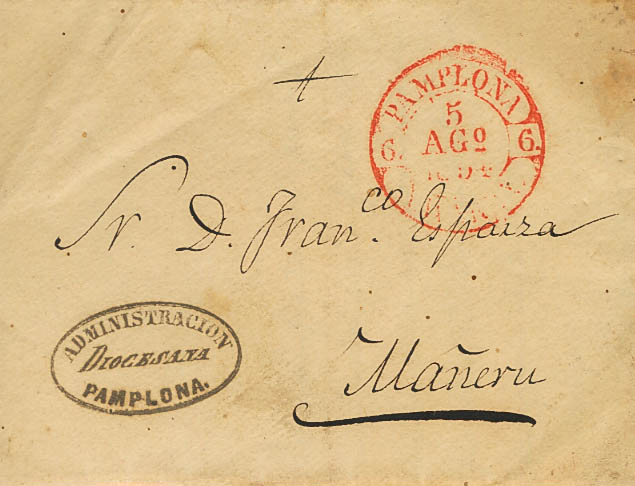 PAMPLONA
5
AGº
6. 6.
Sr. D. Fran.co Esparza
Mañeru
ADMINISTRACION
DIOCESANA
PAMPLONA.